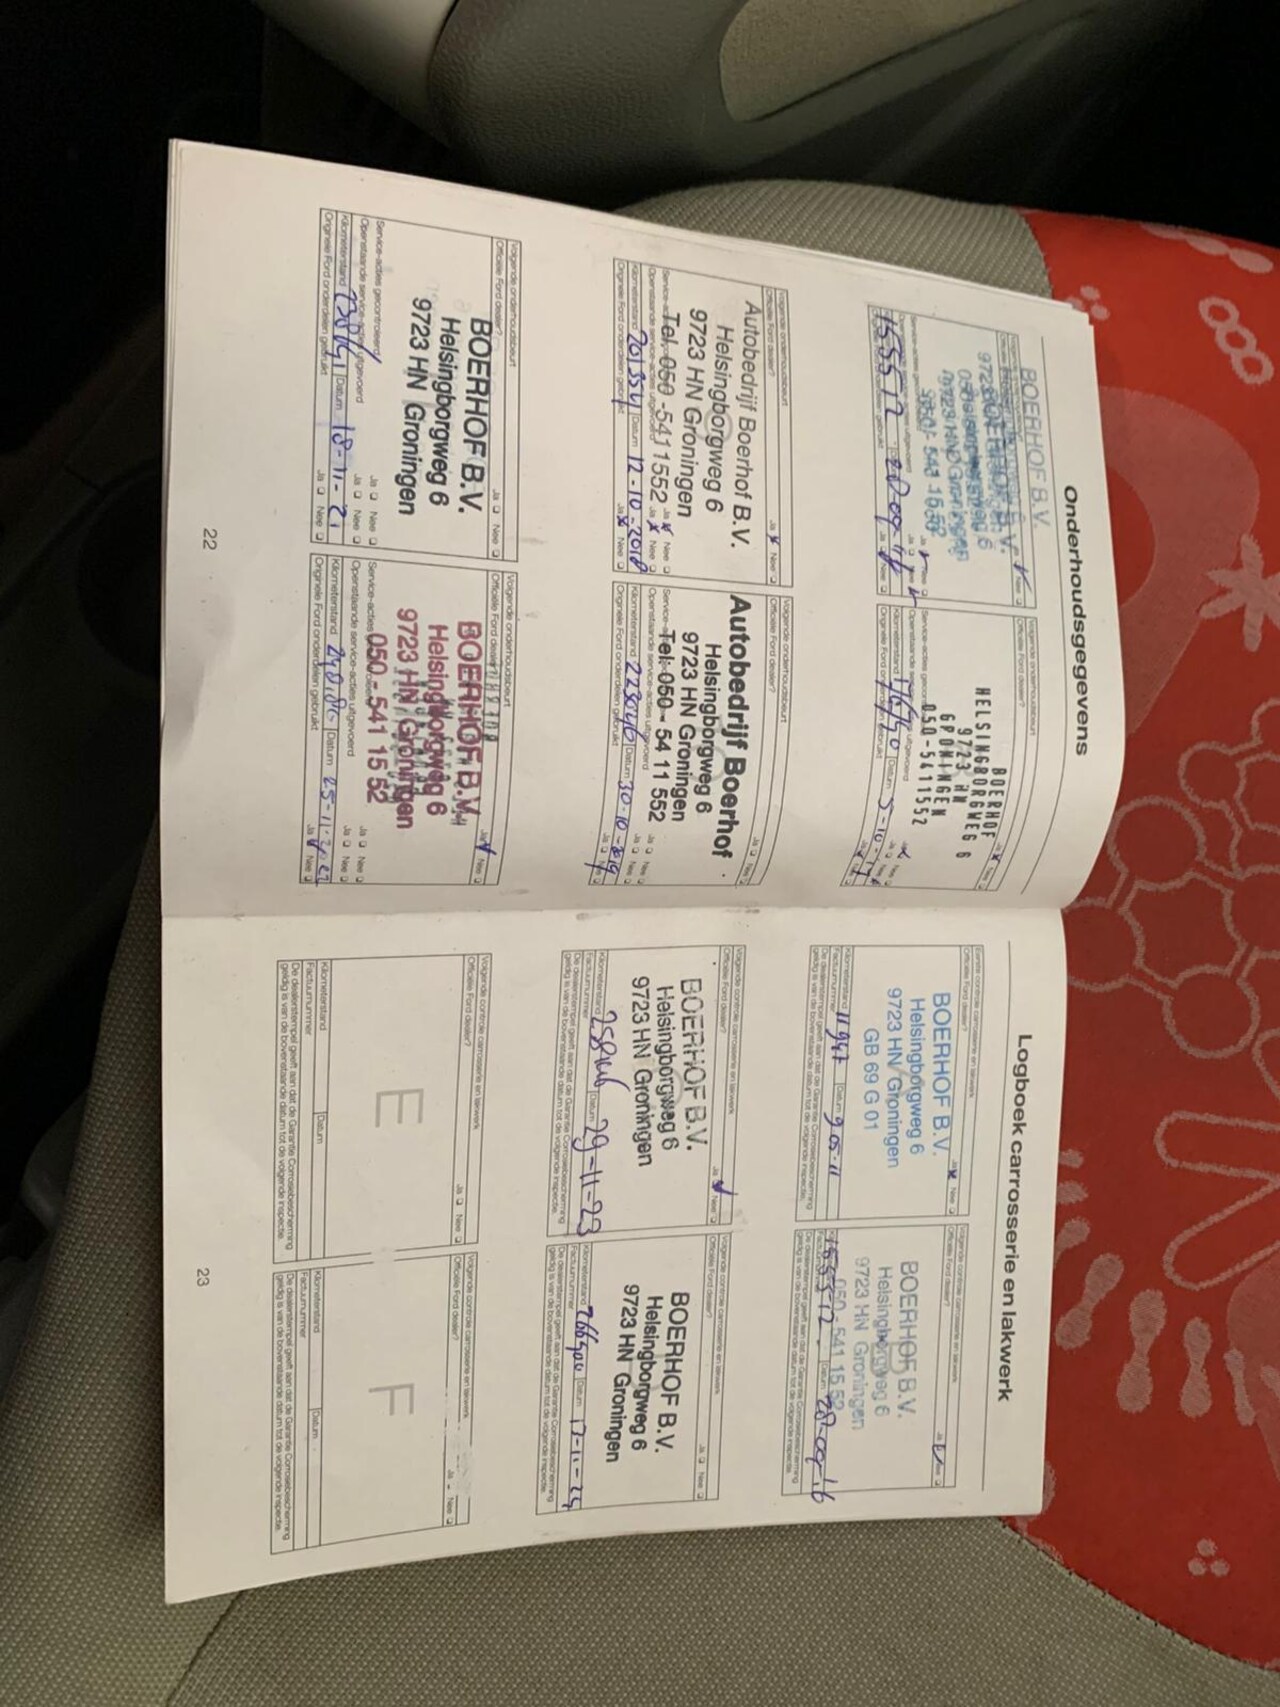 Onderhoudsgegevens
BOERHOF B.V.
155512
BOERHOF
HELSINGBORGWEG 6
9723 HN
GRONINGEN
050-5411552
Officiële Ford dealer?
Volgende onderhoudsbeurt
Officiële Ford dealer?
Ja Nee
Autobedrijf Boerhof B.V.
Helsingborgweg 6
9723 HN Groningen
Tel. 050 -5411552
Kilometerstand 201354 Datum 12-10-2018
Originele Ford onderdelen gebruikt Ja Nee
Volgende onderhoudsbeurt
Officiële Ford dealer?
Ja Nee
Autobedrijf Boerhof
Helsingborgweg 6
9723 HN Groningen
Tel. 050 - 54 11 552
Openstaande service-acties uitgevoerd Ja Nee
Kilometerstand 223046 Datum 30-10-2019
Originele Ford onderdelen gebruikt Ja Nee
Volgende onderhoudsbeurt
Officiële Ford dealer? Ja Nee
BOERHOF B.V.
Helsingborgweg 6
9723 HN Groningen
Service-acties gecontroleerd Ja Nee
Openstaande service-acties uitgevoerd Ja Nee
Kilometerstand Datum 18-11-21
Originele Ford onderdelen gebruikt Ja Nee
Volgende onderhoudsbeurt
Officiële Ford dealer? Ja Nee
BOERHOF B.V.
Helsingborgweg 6
9723 HN Groningen
050 - 541 15 52
Service-acties Ja Nee
Openstaande service-acties uitgevoerd Ja Nee
Kilometerstand Datum 25-11-2022
Originele Ford onderdelen gebruikt Ja Nee
22
Logboek carrosserie en lakwerk
Eerste controle carrosserie en lakwerk
Officiële Ford dealer? Ja Nee
BOERHOF B.V.
Helsingborgweg 6
9723 HN Groningen
GB 69 G 01
Kilometerstand 11947 Datum 9-05-11
Factuurnummer
De dealerstempel geeft aan dat de Garantie Corrosiebescherming
geldig is van de bovenstaande datum tot de volgende inspectie.
Volgende controle carrosserie en lakwerk
Officiële Ford dealer? Ja Nee
BOERHOF B.V.
Helsingborgweg 6
9723 HN Groningen
050 - 541 15 52
155512 Datum 28-09-16
De dealerstempel geeft aan dat de Garantie Corrosiebescherming
geldig is van de bovenstaande datum tot de volgende inspectie.
Volgende controle carrosserie en lakwerk
Officiële Ford dealer? Ja Nee
BOERHOF B.V.
Helsingborgweg 6
9723 HN Groningen
Kilometerstand Datum 29-11-23
Factuurnummer
De dealerstempel geeft aan dat de Garantie Corrosiebescherming
geldig is van de bovenstaande datum tot de volgende inspectie.
Volgende controle carrosserie en lakwerk
Officiële Ford dealer? Ja Nee
BOERHOF B.V.
Helsingborgweg 6
9723 HN Groningen
Kilometerstand 266900 Datum 13-11-24
Factuurnummer
De dealerstempel geeft aan dat de Garantie Corrosiebescherming
geldig is van de bovenstaande datum tot de volgende inspectie.
Volgende controle carrosserie en lakwerk
Officiële Ford dealer? Ja Nee
E
Kilometerstand Datum
Factuurnummer
De dealerstempel geeft aan dat de Garantie Corrosiebescherming
geldig is van de bovenstaande datum tot de volgende inspectie.
Volgende controle carrosserie en lakwerk
Officiële Ford dealer? Ja Nee
F
Kilometerstand Datum
Factuurnummer
De dealerstempel geeft aan dat de Garantie Corrosiebescherming
geldig is van de bovenstaande datum tot de volgende inspectie.
23